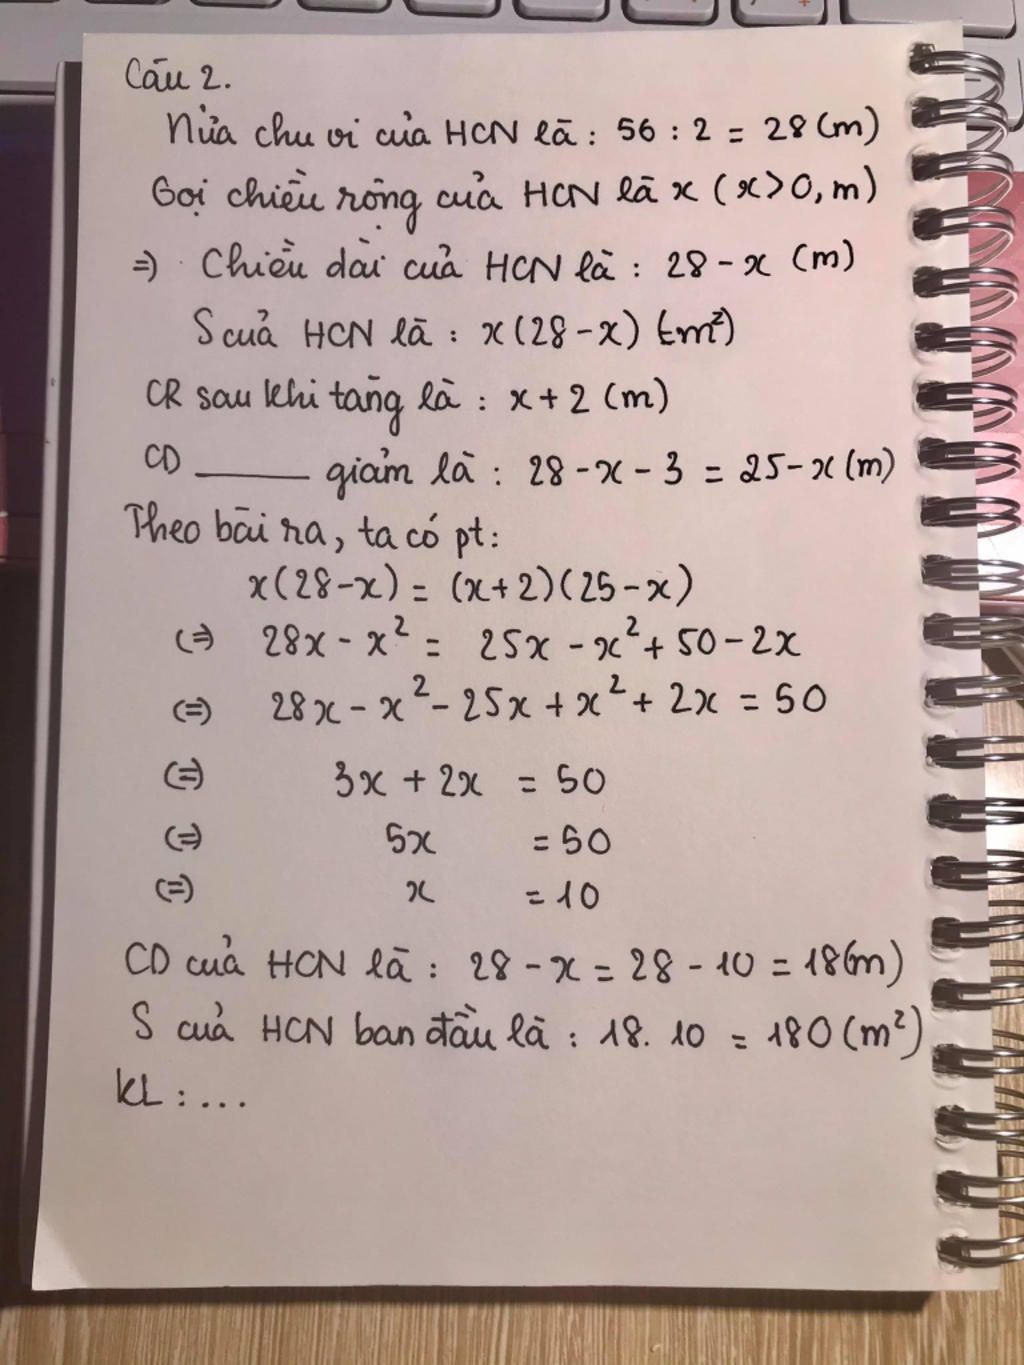 Câu 2.
Nửa chu vi của HCN là : 56 : 2 = 28 (m)
Gọi chiều rộng của HCN là x (x>0, m)
=) Chiều dài của HCN là : 28 - x (m)
S của HCN là : x(28-x) (m²)
CR sau khi tăng là : x+2 (m)
CD ——— giảm là : 28 - x - 3 = 25-x (m)
Theo bài ra, ta có pt:
x(28-x) = (x+2)(25-x)
(=) 28x - x² = 25x - x² + 50 - 2x
(=) 28x - x² - 25x + x² + 2x = 50
(=) 3x + 2x = 50
(=) 5x = 50
(=) x = 10
CD của HCN là : 28 - x = 28 - 10 = 18(m)
S của HCN ban đầu là : 18. 10 = 180 (m²)
KL : ...